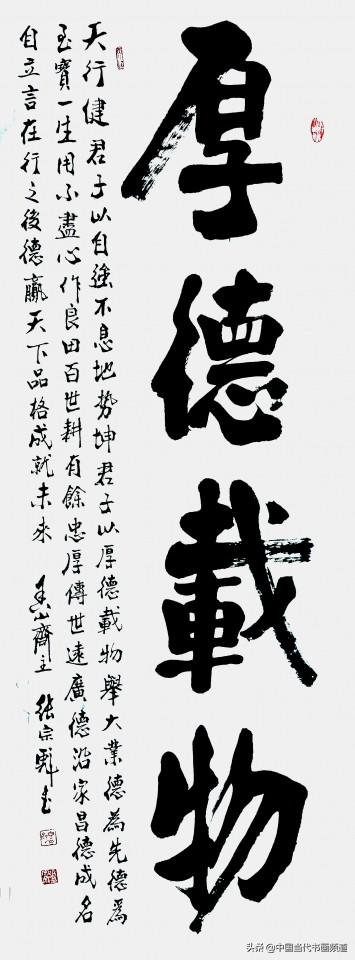 厚德載物
天行健君子以自強不息地勢坤君子以厚德載物舉大業德為先德為
至寶一生用不盡心作良田百世耕有餘忠厚傳世遠廣德治家昌德成名
自立言在行之後德贏天下品格成就未來 山齋主 張宗彪書
头条 @中国当代书画频道